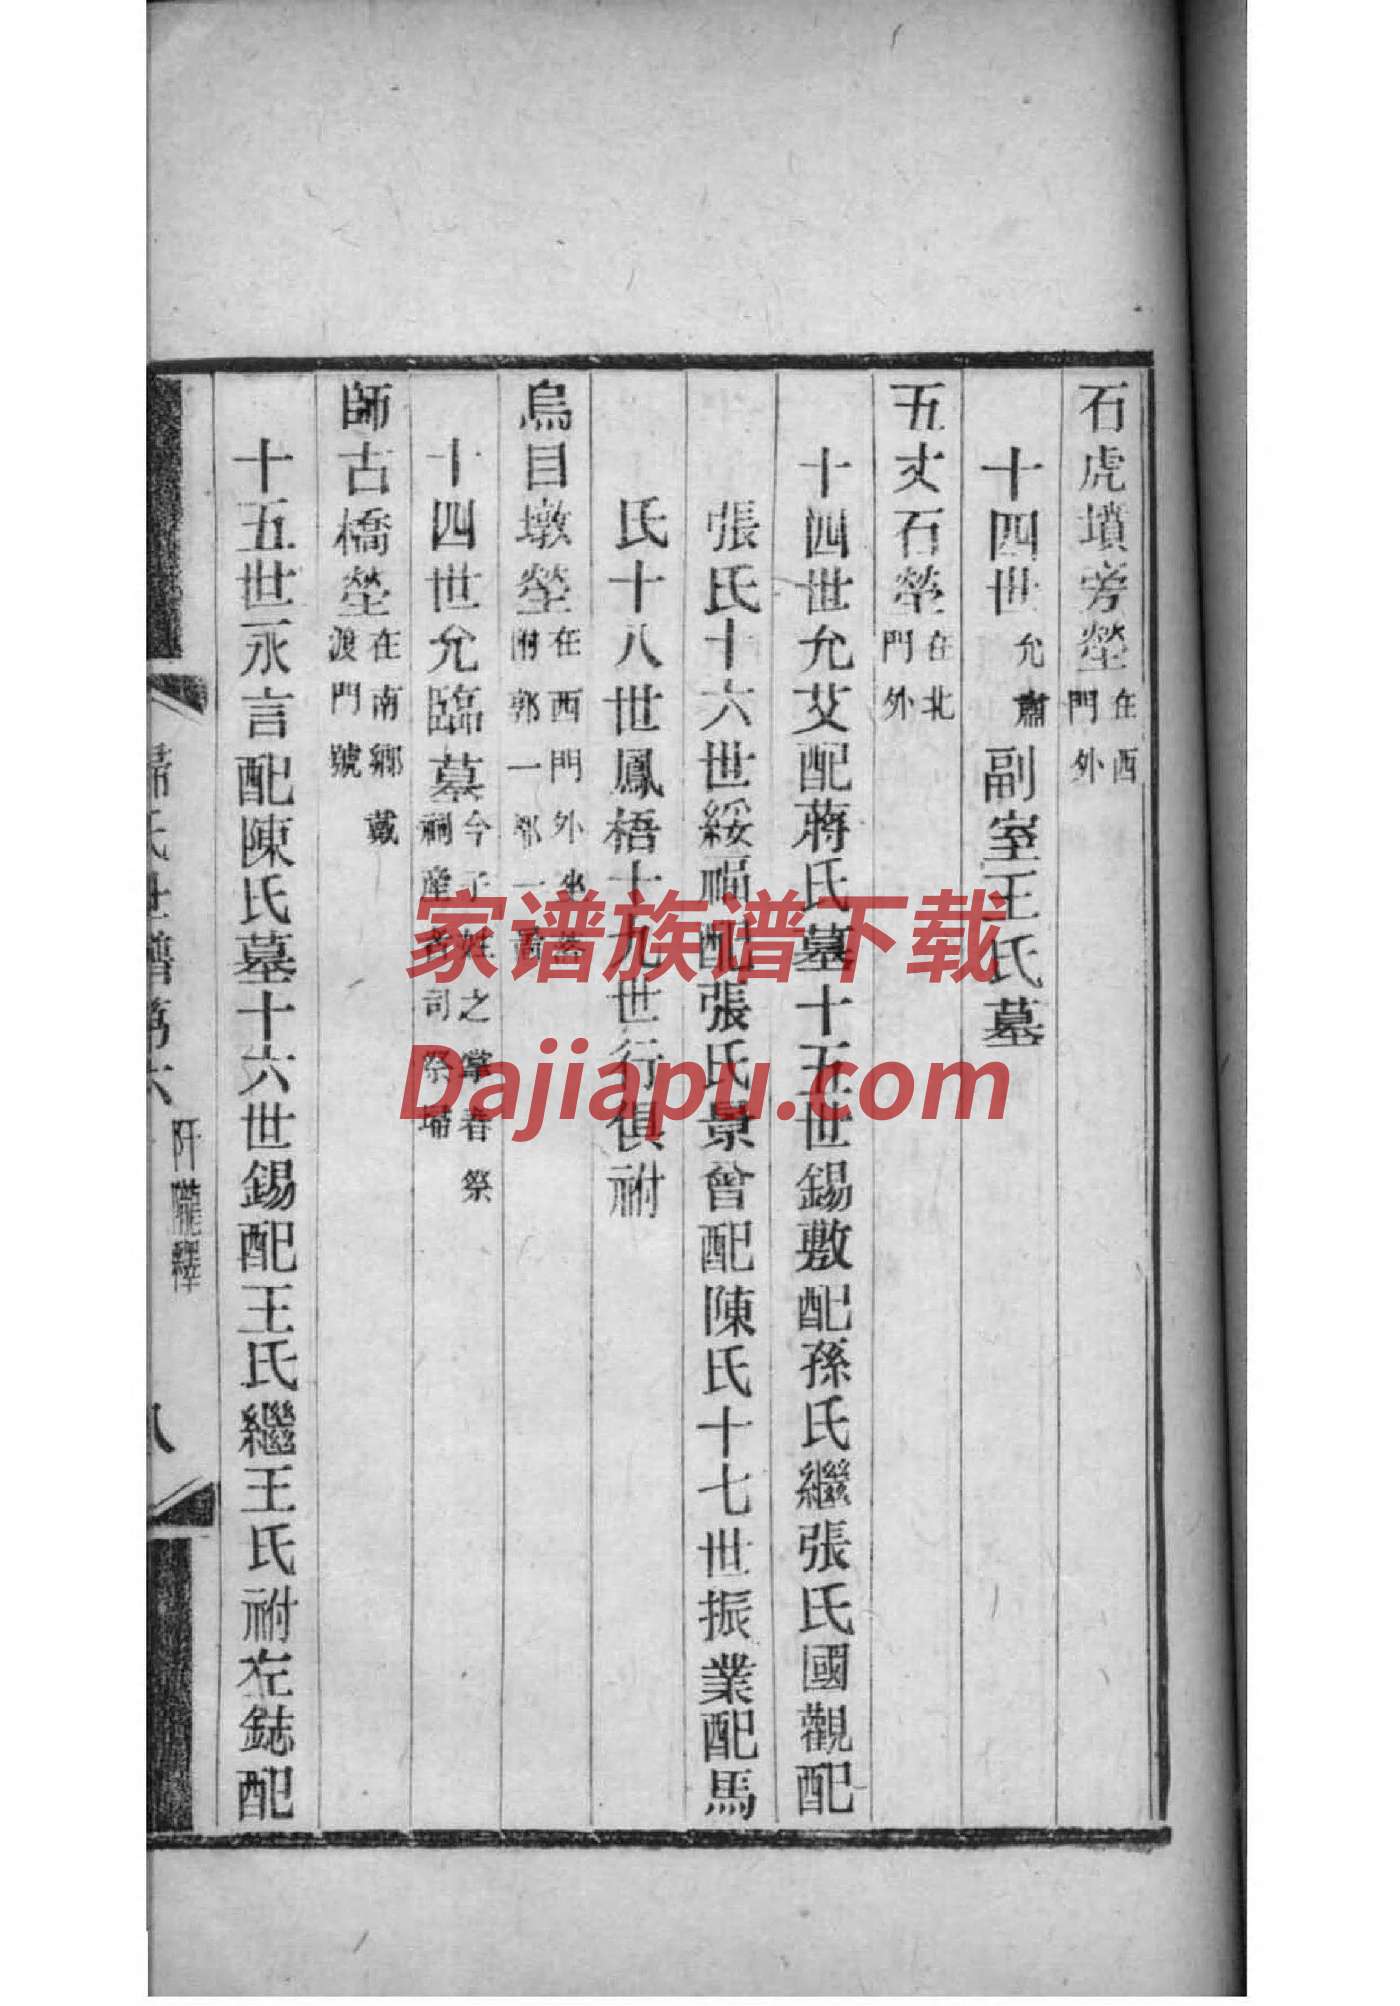 石虎墳旁塋在西門外
十四世允肅副室王氏墓
五丈石塋在北門外
十四世允艾配蔣氏墓十五世錫敷配孫氏繼張氏國觀配
張氏十六世綏福配張氏景曾配陳氏十七世振業配馬
氏十八世鳳梧十九世行俱祔
烏目墩塋在西門外坐落附郭一都一啚
十四世允臨墓今之掌春祭祠產司祭埽
師古橋塋在南鄉戴渡門號
十五世永言配陳氏墓十六世錫配王氏繼王氏祔左鋕配
歸氏世譜第六
阡隴繹
八
家谱族谱下载
Dajiapu.com